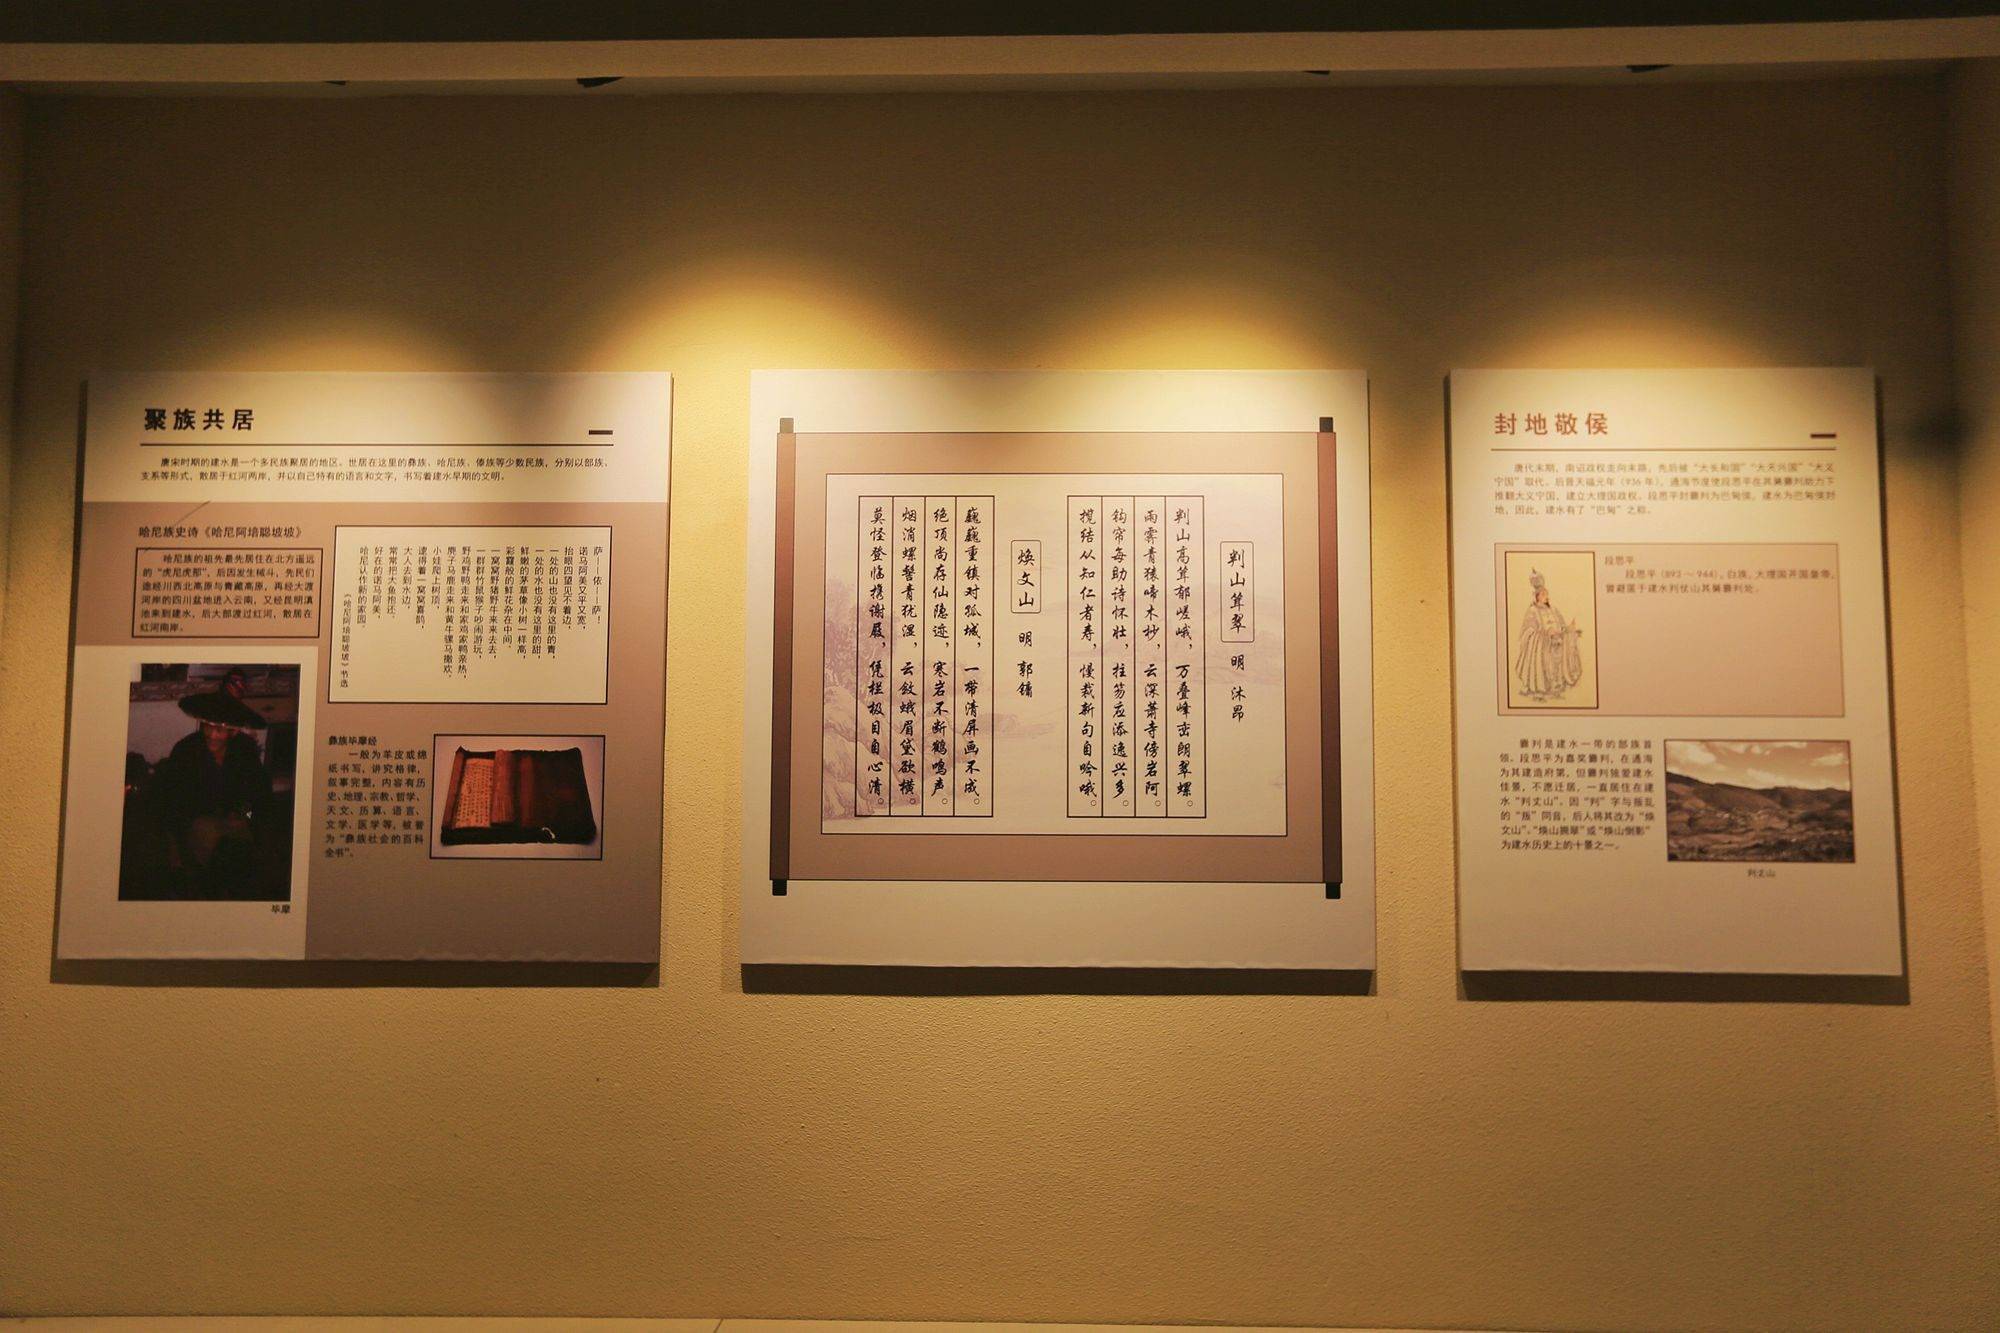 聚族共居
唐宋时期的建水是一个多民族聚居的地区。世居在这里的彝族、哈尼族、傣族等少数民族，分别以部族、
支系等形式，散居于红河两岸，并以自己特有的语言和文字，书写着建水早期的文明。
哈尼族史诗《哈尼阿培聪坡坡》
哈尼族的祖先最先居住在北方遥远
的“虎尼虎那”，后因发生械斗，先民们
途经川西北高原与青藏高原，再经大渡
河岸的四川盆地进入云南，又经昆明滇
池来到建水，后大部渡过红河，散居在
红河南岸。
萨——依——萨！
诺马阿美又平又宽，
抬眼四望见不着边，
一处的山也没有这里的青，
一处的水也没有这里的甜，
鲜嫩的茅草像小树一样高，
彩霞般的鲜花杂在中间。
一窝窝野猪野牛来来去去，
一群群竹鼠猴子吵闹游玩，
野鸡野鸭走来和家鸡家鸭亲热，
麂子马鹿走来和黄牛骡马撒欢。
小娃爬上树顶，
逮得着一窝窝喜鹊，
大人去到水边，
常常把大鱼抱还。
好在的诺马阿美，
哈尼认作新的家园。
《哈尼阿培聪坡坡》书选
毕摩
彝族毕摩经
一般为羊皮或绵
纸书写，讲究格律，
叙事完整，内容有历
史、地理、宗教、哲学、
天文、历算、语言、
文学、医学等，被誉
为“彝族社会的百科
全书”。
判山耸翠
明 沐昂
判山高耸郁嵯峨，万叠峰峦朗翠螺。
雨霁青猿啼木杪，云深萧寺傍岩阿。
钩帘每助诗怀壮，拄笏应添逸兴多。
揽结从知仁者寿，慢裁新句自吟哦。
焕文山
明 郭镛
巍巍重镇对孤城，一带清屏画不成。
绝顶尚存仙隐迹，寒岩不断鹤鸣声。
烟消螺髻青犹湿，云敛蛾眉黛欲横。
莫怪登临携谢屐，凭栏极目自心清。
封地敬侯
唐代末期，南诏政权走向末路，先后被“大长和国”“大天兴国”“大义
宁国”取代。后晋天福元年（936年），通海节度使段思平在其舅爨判助力下
推翻大义宁国，建立大理国政权。段思平封爨判为巴甸侯，建水为巴甸侯封
地，因此，建水有了“巴甸”之称。
段思平
段思平（893～944），白族，大理国开国皇帝，
曾避匿于建水判仗山其舅爨判处。
爨判是建水一带的部族首
领。段思平为嘉奖爨判，在通海
为其建造府第，但爨判独爱建水
佳景，不愿迁居，一直居住在建
水“判丈山”。因“判”字与叛乱
的“叛”同音，后人将其改为“焕
文山”。“焕山拥翠”或“焕山倒影”
为建水历史上的十景之一。
判丈山